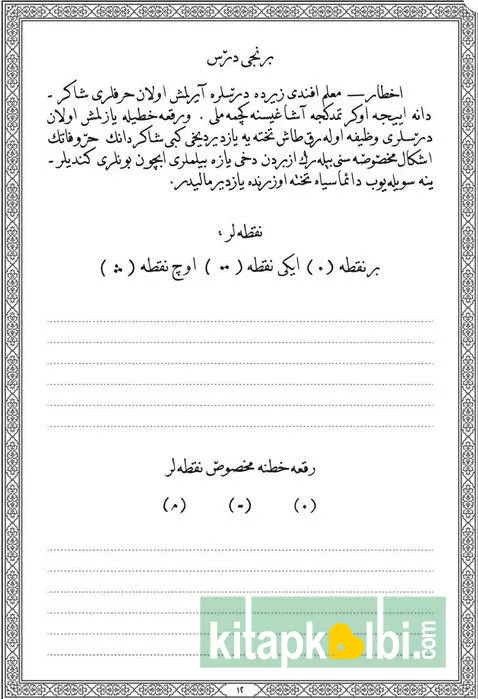 برنجی درس
اخطار — معلم افندی زیرده درسلره آیرلمش اولان حرفلری شاکر -
دانه اییجه اوکر تمدکجه آشاغیسنه کچمه ملی . ورقعه خطیله یازلمش اولان
درسلری وظیفه اوله رق طاش تخته یه یازدیردیغی کبی شاکردانك حروفاتك
اشکال مخصوصه سنی بیله رك ازبردن دخی یازه بیلملری ایچون بونلری کندیلر -
ینه سویله یوب دائما سیاه تخته اوزرنده یازدیرمالیدر.
نقطه لر :
برنقطه (۰) ایکی نقطه (¨) اوچ نقطه ( )
رقعه خطنه مخصوص نقطه لر
(۰) (-) (^)
kitapkalbi.com
١٢